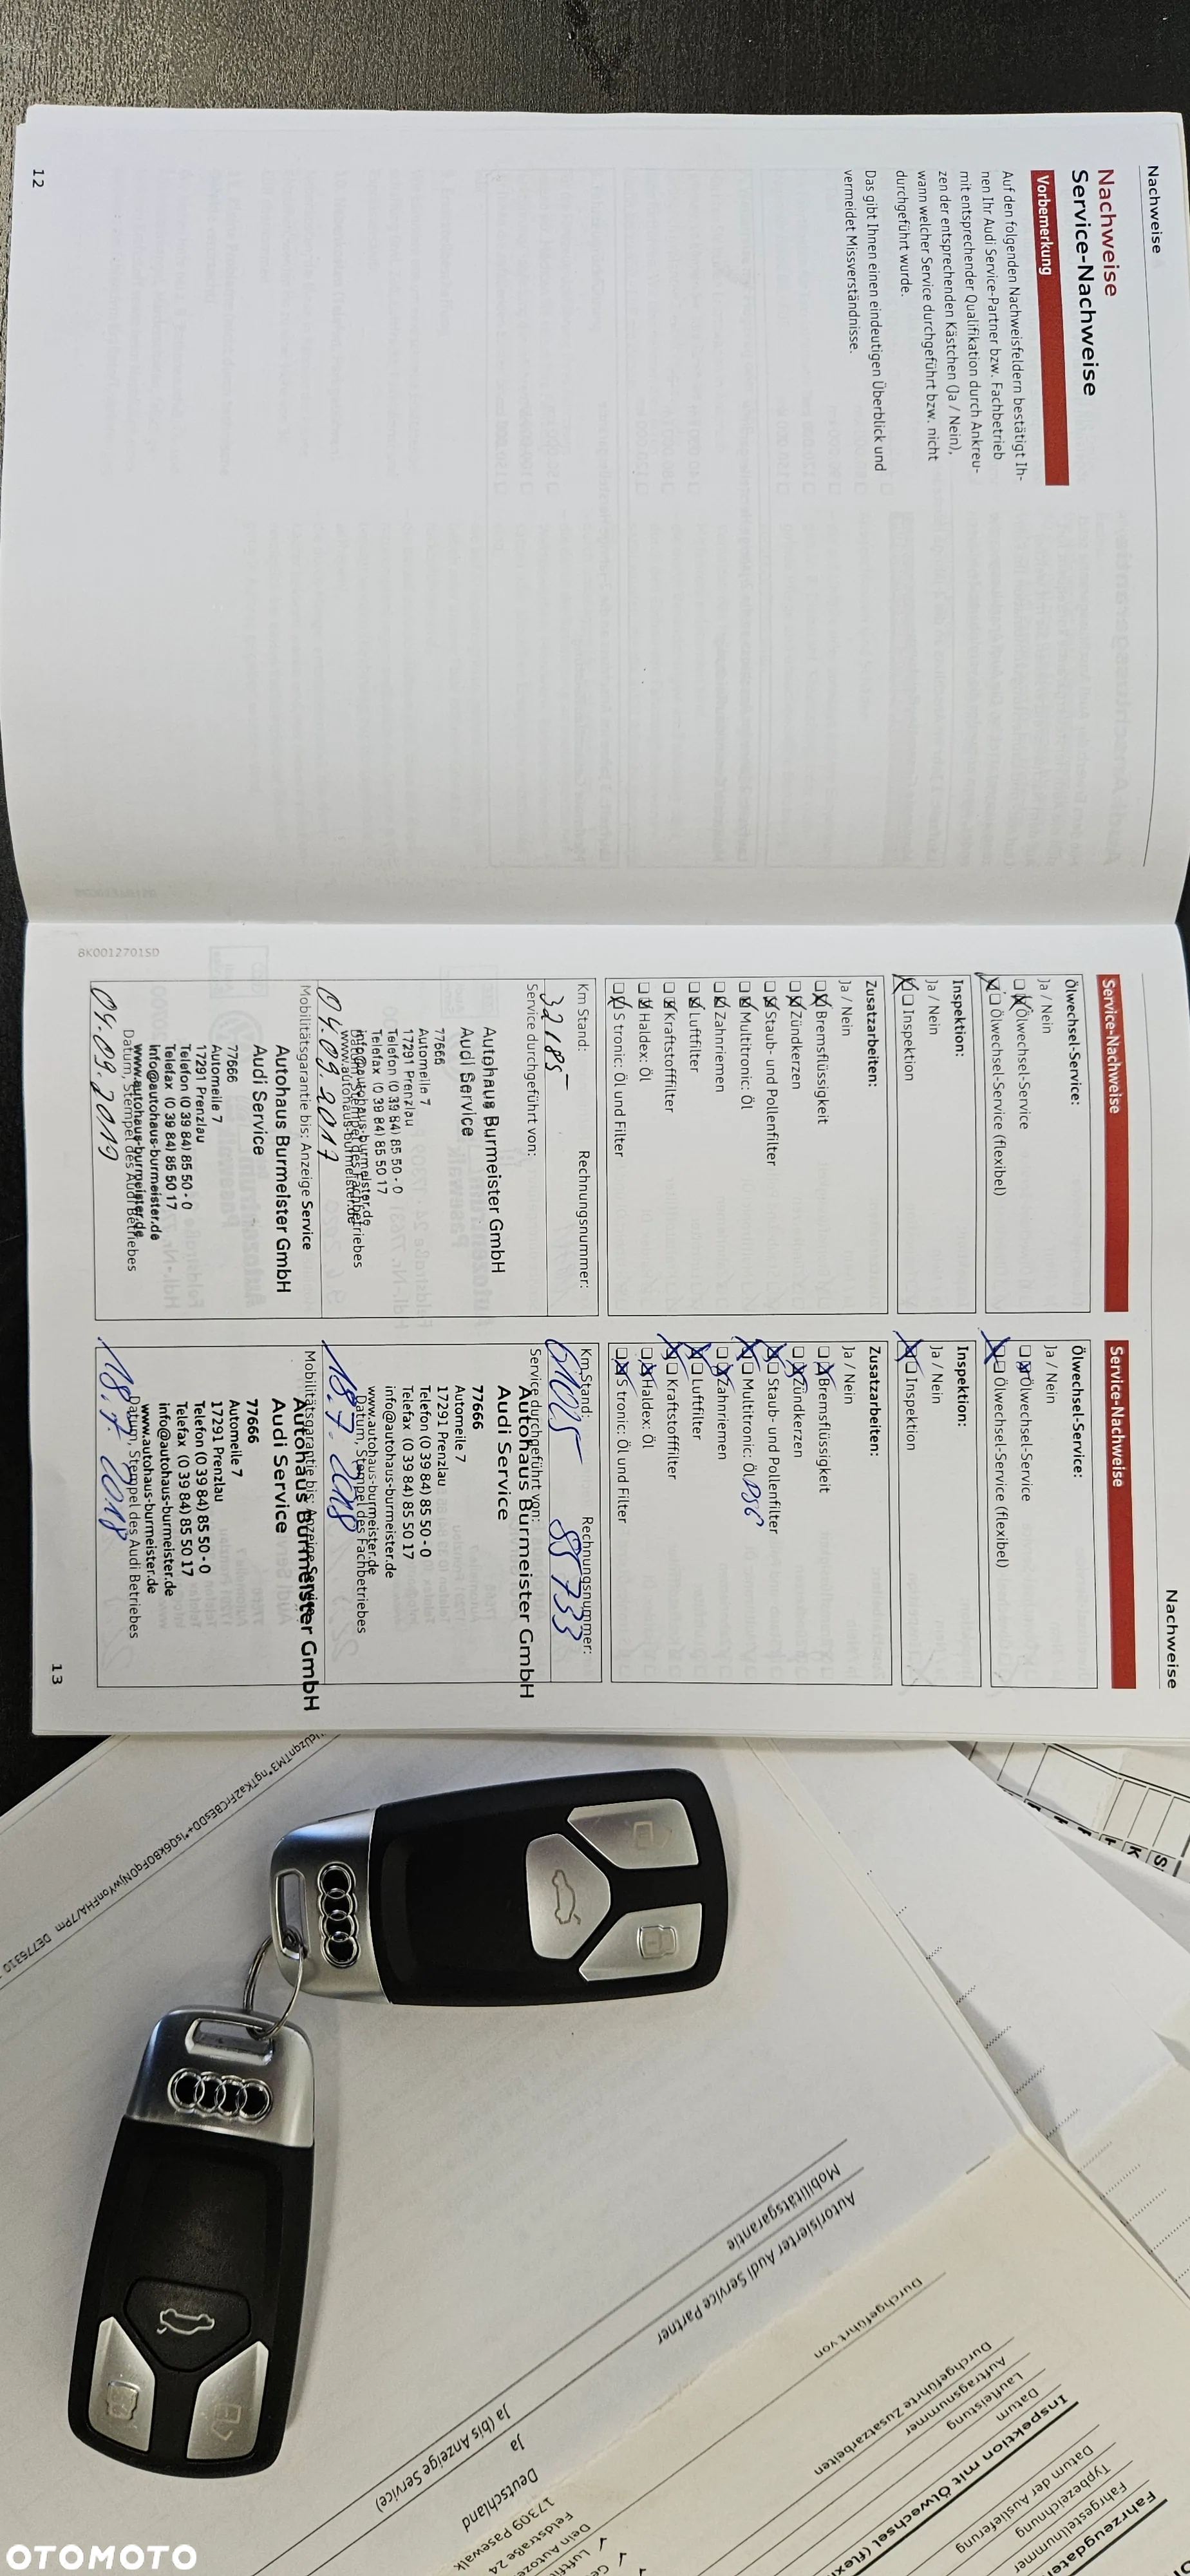 Nachweise
Nachweise
Service-Nachweise
Vorbemerkung
Auf den folgenden Nachweisfeldern bestätigt Ih-
nen Ihr Audi Service-Partner bzw. Fachbetrieb
mit entsprechender Qualifikation durch Ankreu-
zen der entsprechenden Kästchen (Ja / Nein),
wann welcher Service durchgeführt bzw. nicht
durchgeführt wurde.
Das gibt Ihnen einen eindeutigen Überblick und
vermeidet Missverständnisse.
12
Nachweise
Service-Nachweise
Ölwechsel-Service:
Ja / Nein
Ölwechsel-Service
Ölwechsel-Service (flexibel)
Inspektion:
Ja / Nein
Inspektion
Zusatzarbeiten:
Ja / Nein
Bremsflüssigkeit
Zündkerzen
Staub- und Pollenfilter
Multitronic: Öl
Zahnriemen
Luftfilter
Kraftstofffilter
Haldex: Öl
S tronic: Öl und Filter
Km Stand: Rechnungsnummer:
32185
Service durchgeführt von:
Autohaus Burmeister GmbH
Audi Service
77666
Automeile 7
17291 Prenzlau
Telefon (0 39 84) 85 50 - 0
Telefax (0 39 84) 85 50 17
info@autohaus-burmeister.de
www.autohaus-burmeister.de
04.09.2017
Mobilitätsgarantie bis: Anzeige Service
Autohaus Burmeister GmbH
Audi Service
77666
Automeile 7
17291 Prenzlau
Telefon (0 39 84) 85 50 - 0
Telefax (0 39 84) 85 50 17
info@autohaus-burmeister.de
www.autohaus-burmeister.de
Datum, Stempel des Audi Betriebes
04.09.2019
8K0012701SD
Service-Nachweise
Ölwechsel-Service:
Ja / Nein
Ölwechsel-Service
Ölwechsel-Service (flexibel)
Inspektion:
Ja / Nein
Inspektion
Zusatzarbeiten:
Ja / Nein
Bremsflüssigkeit
Zündkerzen
Staub- und Pollenfilter
Multitronic: Öl DSG
Zahnriemen
Luftfilter
Kraftstofffilter
Haldex: Öl
S tronic: Öl und Filter
Km Stand: Rechnungsnummer:
85733
Service durchgeführt von:
Autohaus Burmeister GmbH
Audi Service
77666
Automeile 7
17291 Prenzlau
Telefon (0 39 84) 85 50 - 0
Telefax (0 39 84) 85 50 17
info@autohaus-burmeister.de
www.autohaus-burmeister.de
Datum, Stempel des Fachbetriebes
18.7.2018
Mobilitätsgarantie bis: Anzeige Service
Autohaus Burmeister GmbH
Audi Service
77666
Automeile 7
17291 Prenzlau
Telefon (0 39 84) 85 50 - 0
Telefax (0 39 84) 85 50 17
info@autohaus-burmeister.de
www.autohaus-burmeister.de
Datum, Stempel des Audi Betriebes
18.7.2018
13
Fahrzeugdate
Fahrgestellnummer
Typbezeichnung
Datum der Auslieferung
Inspektion mit Ölwechsel (flex
Datum
Laufleistung
Auftragsnummer
Durchgeführte Zusatzarbeiten
Durchgeführt von
Feldstraße 24
17309 Pasewalk
Deutschland
Autorisierter Audi Service Partner
Ja
Mobilitätsgarantie
Ja (bis Anzeige Service)
OTOMOTO